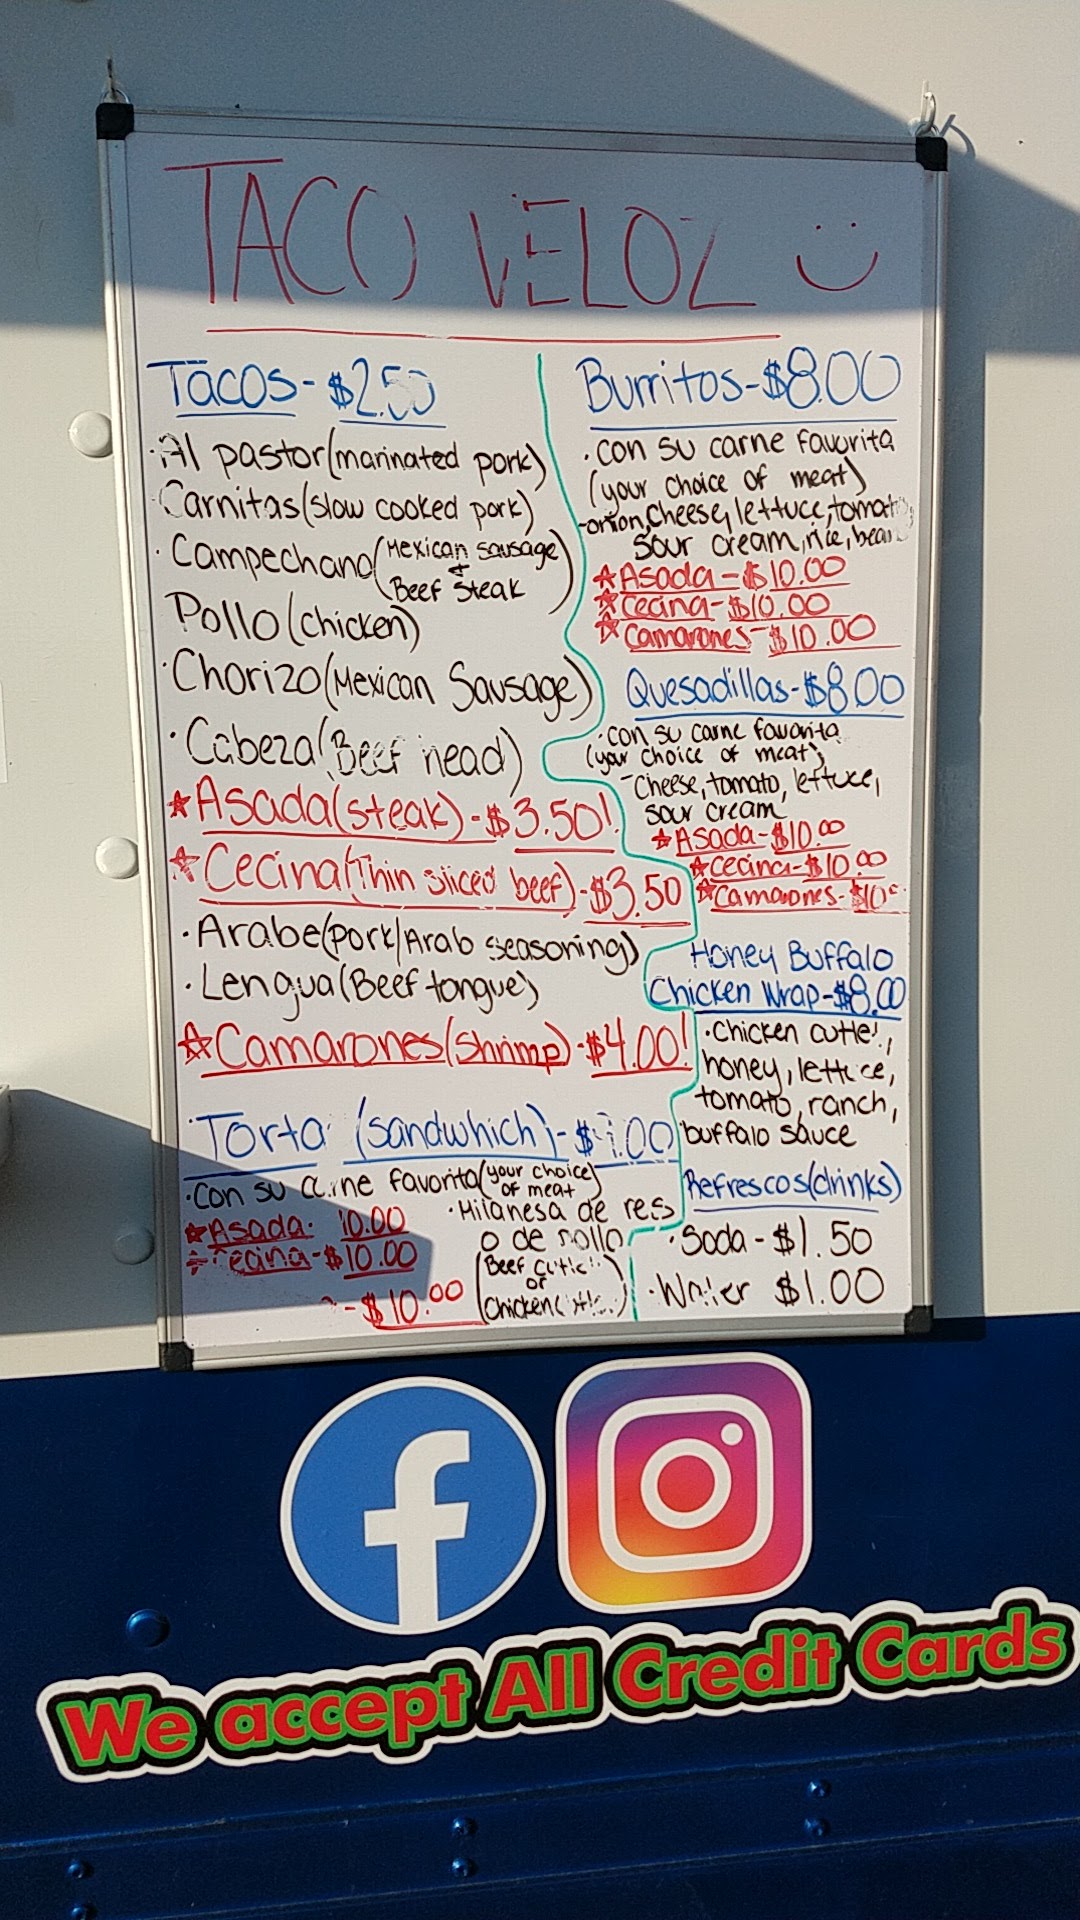 TACO VELOZ
Tacos - $2.50
·Al pastor (marinated pork)
·Carnitas (slow cooked pork)
·Campechano (Mexican sausage
+
Beef Steak
Pollo (chicken)
·Chorizo (Mexican Sausage)
·Cabeza (Beef head)
Asada (steak) - $3.50!
Cecina (Thin sliced beef) - $3.50
·Arabe (pork/Arab seasoning)
·Lengua (Beef tongue)
Camarones (shrimp) - $4.00!
·Torta (sandwhich) -
·Con su carne favorita (your choice
of meat)
Asada· 10.00
Cecina - $10.00
- $10.00
·Milanesa de res
o de pollo
(Beef
or
Chicken
Burritos - $8.00
·con su carne favorita
(your choice of meat)
-onion, cheese, lettuce, tomato,
sour cream, rice, bean
Asada - $10.00
Cecina - $10.00
Camarones - $10.00
Quesadillas - $8.00
·con su carne favorita
(your choice of meat)
-cheese, tomato, lettuce,
sour cream
Asada - $10.00
Cecina - $10.00
Camarones - $10
Honey Buffalo
Chicken Wrap - $8.00
·Chicken cutlet,
honey, lettuce,
tomato, ranch,
buffalo sauce
Refrescos (drinks)
·Soda - $1.50
·Water $1.00
We accept All Credit Cards